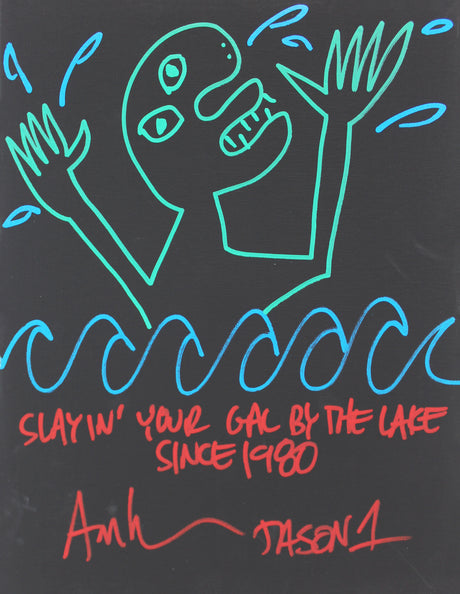 SLAYIN' YOUR GAL BY THE LAKE
SINCE 1980
JASON 1